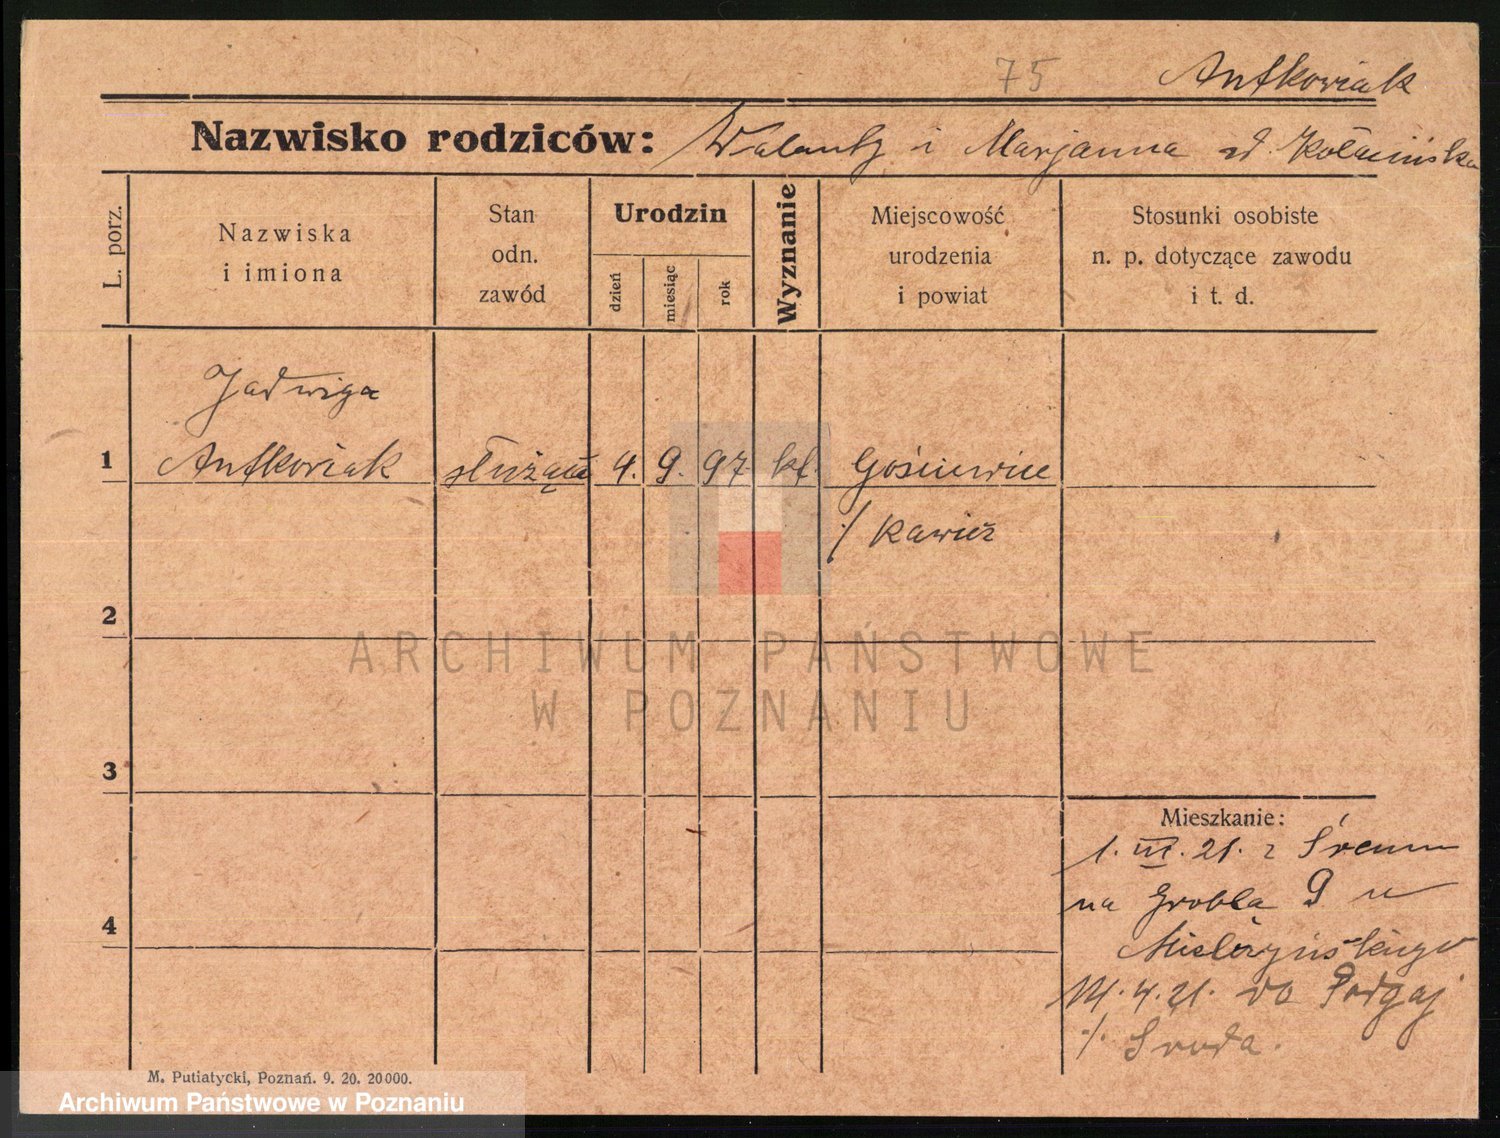 75 Antkowiak
Nazwisko rodziców: Walenty i Marjanna zd. Kołacińska
L. porz.
Nazwiska
i imiona
Stan
odn.
zawód
Urodzin
dzień
miesiąc
rok
Wyznanie
Miejscowość
urodzenia
i powiat
Stosunki osobiste
n. p. dotyczące zawodu
i t. d.
Jadwiga
1 Antkowiak służąca 4. 9. 97. kt. Gościewice
·/ Rawicz
2
ARCHIWUM PAŃSTWOWE
W POZNANIU
3
Mieszkanie:
1. III. 21. z Śrem
na Grobla 9 u
4
Mielżyńskiego
4. 21. do Podgaj
·/ Środa.
M. Putiatycki, Poznań. 9. 20. 20000.
Archiwum Państwowe w Poznaniu